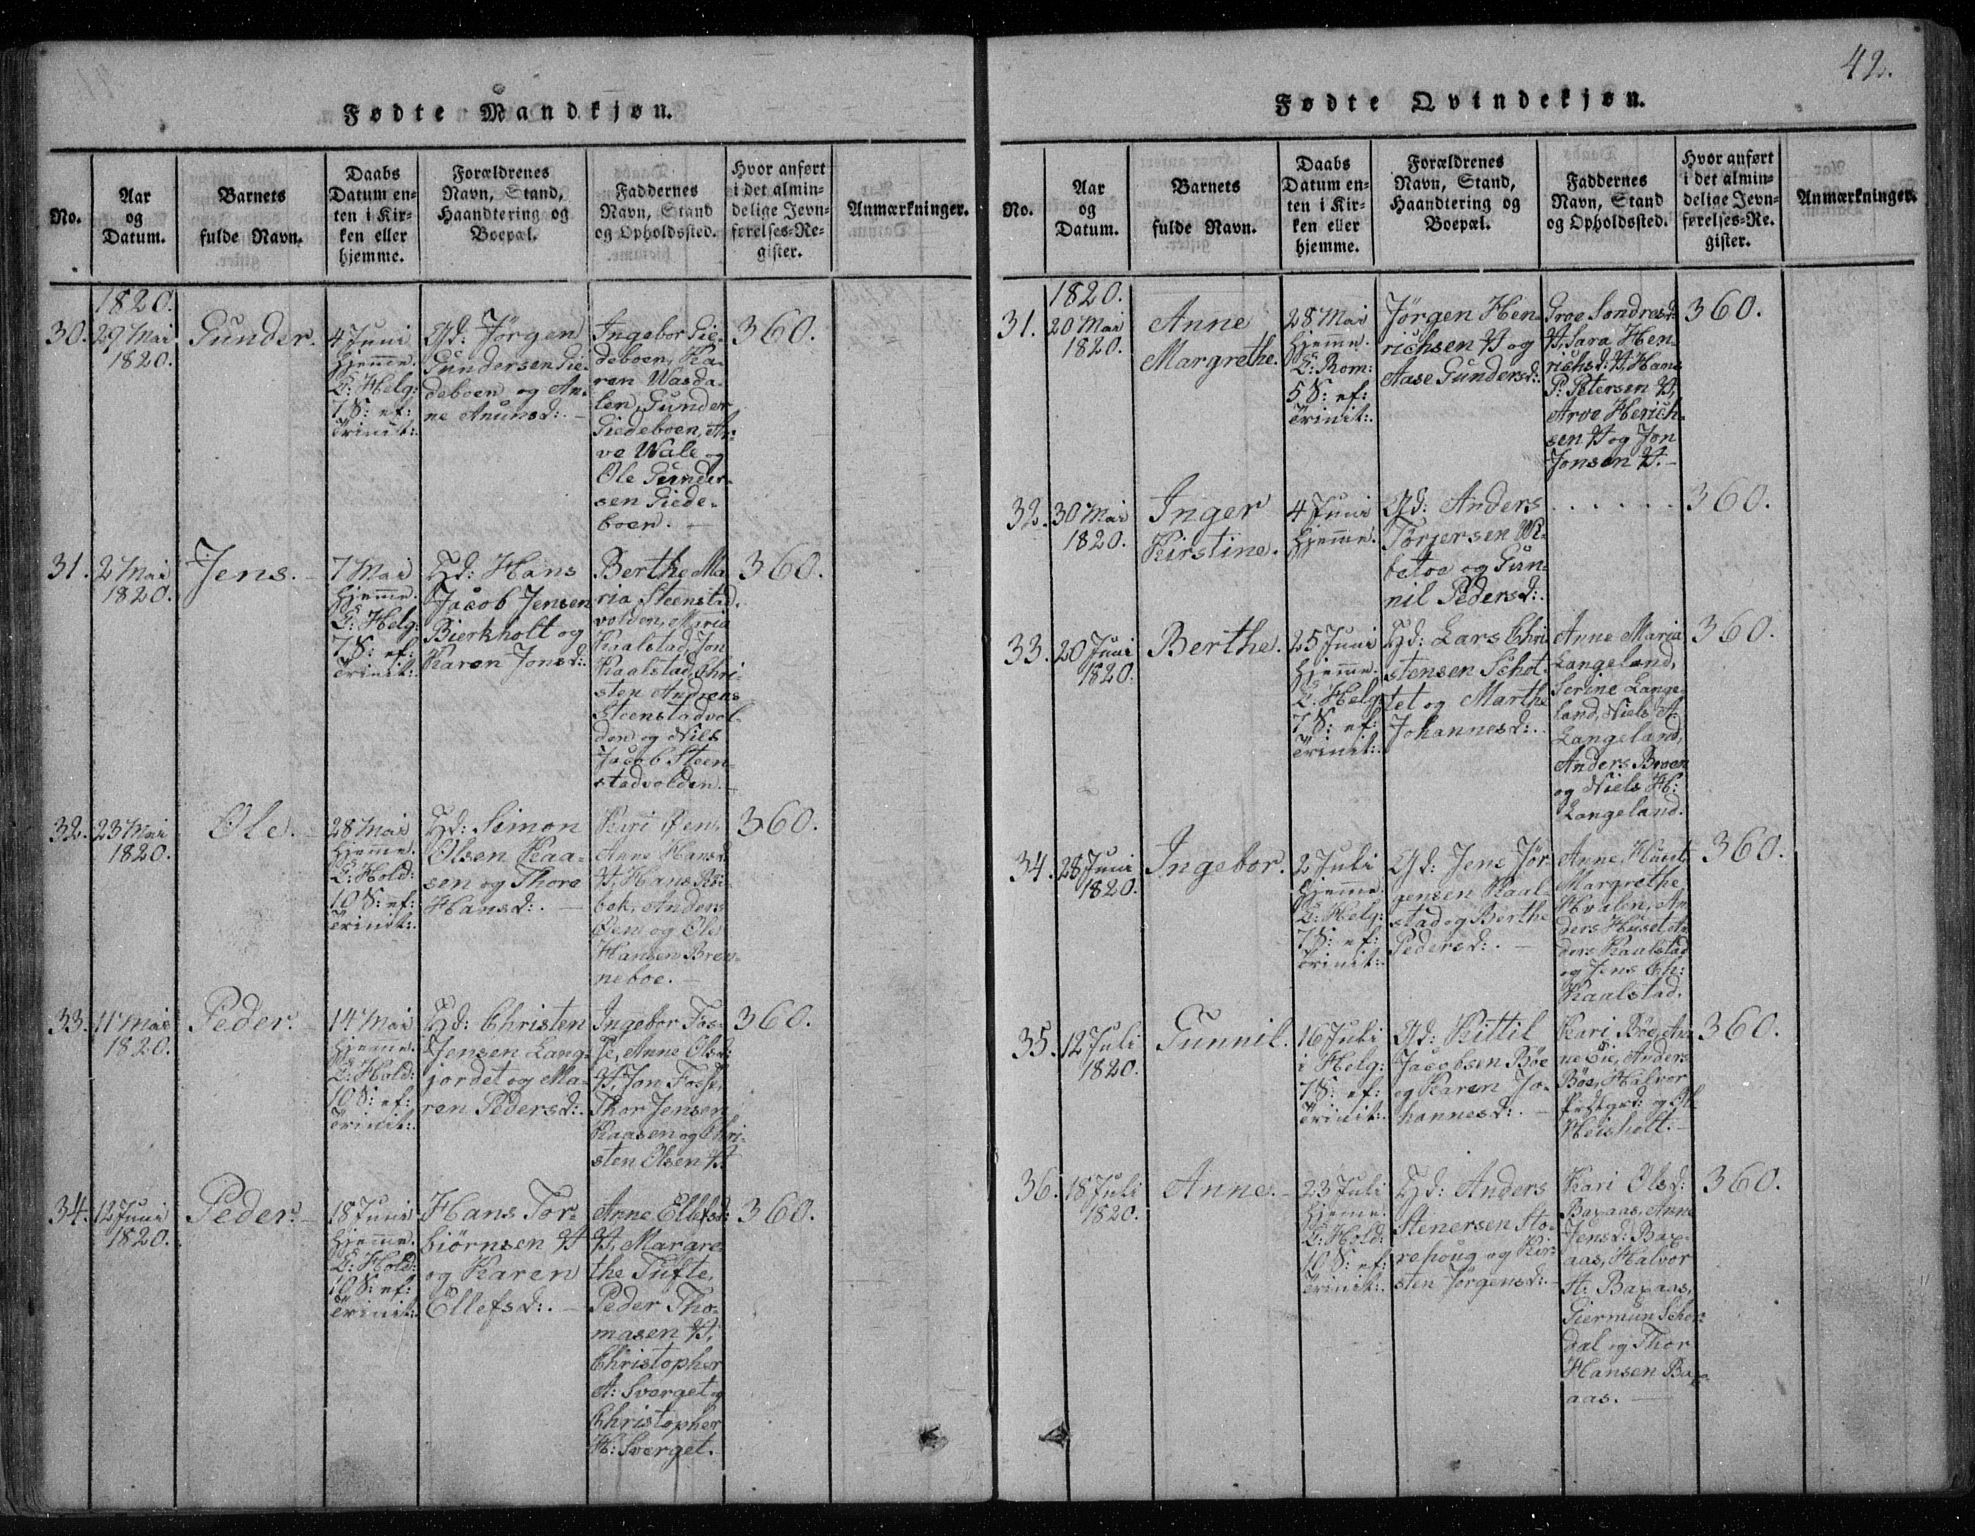 42.
Fødte Mandkjøn.
No.
Aar
og
Datum.
Barnets
fulde Navn.
Daabs
Datum en-
ten i Kir-
ken eller
hjemme.
Forældrenes
Navn, Stand,
Haandtering og
Boepæl.
Faddernes
Navn, Stand
og Opholdssted.
Hvor anført
i det almin-
delige Jevn-
førelses-Re-
gister.
Anmærkninger.
1820.
30.
29 Mai
1820.
Gunder.
4 Juni
hjemme.
E: Helg:
7 S: ef:
Trinit:.
Gd: Jörgen
Gundersen Gie-
deboen og An-
ne Anunsd:. –
Ingebor Gie-
deboen, Ka-
ren Wasda-
len, Gunder
Giedeboen, Ar-
ve Wale og
Ole Gunder-
sen Giede-
boen. –
360.
31.
2 Mai
1820.
Jens. –
7 Mai
hjemme.
E: Helg:
7 S: ef:
Trinit:.
Hd: Hans
Jacob Jensen
Bierkholt og
Karen Jonsd:.
Berthe Ma
ria Steenstad.
volden, Maria
Kaalstad, Jon
Kaalstad, Chri-
sten Andreas
Steenstadvol-
den og Niels
Jacob Steen-
stadvolden.
360.
32.
23 Mai
1820.
Ole. –
28 Mai
hjemme.
E: Hold:
10 S: ef:
Trinit:.
Hd: Simon
Olsen Kaa-
sen og Thore
Hansd:. –
Kari Øen,
Anne Hansd:
bek, Anders
Øen og Ole
Hansen Bren-
neboe. –
360.
33.
11 Mai
1820.
Peder. –
14 Mai
hjemme.
E: Hold:
10 S: ef:
Trinit:.
Hd: Christen
Jensen Lang-
jordet og Ma-
ren Pedersd:.
Ingebor Fos-
se, Anne Olsd:
Thor Jensen
Kaasen og Chri-
sten Olsen
360.
34.
12 Juni
1820.
Peder. –
18 Juni
hjemme.
E: Hold:
10 S: ef:
Trinit:.
Hans Tor-
biörnsen
og Karen
Ellefsd:. –
Anne Ellefsd:
Margre
the Tufte,
Peder Tho-
masen
Christopher
A: Sverget og
Christopher
H: Sverget.
360.
Fødte Qvindekjøn.
No.
Aar
og
Datum.
Barnets
fulde Navn.
Daabs
Datum en-
ten i Kir-
ken eller
hjemme.
Forældrenes
Navn, Stand,
Haandtering og
Boepæl.
Faddernes
Navn, Stand
og Opholdssted.
Hvor anført
i det almin-
delige Jevn-
førelses-Re-
gister.
Anmærkninger.
1820.
31.
20 Mai
1820.
Anne
Margrethe.
28 Mai
hjemme.
E: Rom:
5 S: ef:
Trinit:.
Jörgen Hen
richsen og
Aase Gundersd:.
Groe Sondresd:
Sara Hen
richsd: Hans
P: Petersen
Arve Herich-
sen og Jon
Jonsen
360.
32.
30 Mai
1820.
Inger
Kirstine.
4 Juni
hjemme.
Gd: Anders
Torjersen Wi-
betoe og Gun-
nil Pedersd:.
. . . . . . .
360.
33.
20 Juni
1820.
Berthe.
25 Juni
hjemme.
E: Helg
7 S: ef:
Trinit:.
Hd: Lars Chri
stensen Schot
tet og Marthe
Johannesd:.
Anne Maria
Langeland,
Serine Lange-
land, Niels A:
Langeland,
Anders Broen
og Niels H:
Langeland.
360.
34.
28 Juni
1820.
Ingebor.
2 Juli
hjemme.
E: Helg:
7 S: ef:
Trinit:.
Gd: Jens Jör
gensen Kaal-
stad og Berthe
Pedersd:. –
Anne Huset,
Margrethe
Hvalen, An
ders Huset, An
ders Kaalstad
og Jens Ch:
Kaalstad.
360.
35.
12 Juli
1820.
Gunnil.
16 Juli
i Helg:
7 S: ef:
Trinit:.
Gd: Kittil
Jacobsen Böe
og Karen Jo-
hannesd:. –
Kari Böe, An
Anders
Böe, Halvor
Meisholt. –
360.
36.
18 Juli
1820.
Anne. –
23 Juli
hjemme.
E: Hold:
10 S: ef:
Trinit:.
Hd: Anders
Stenersen Sto-
rehoug og Kir-
sten Jörgensd:.
Kari Olsd:
Baxaas, Anne
Jensd: Bax-
aas, Halvor
H: Baxaas,
Giermun Schor
dal og Thor
Hansen Bax
aas. –
360.